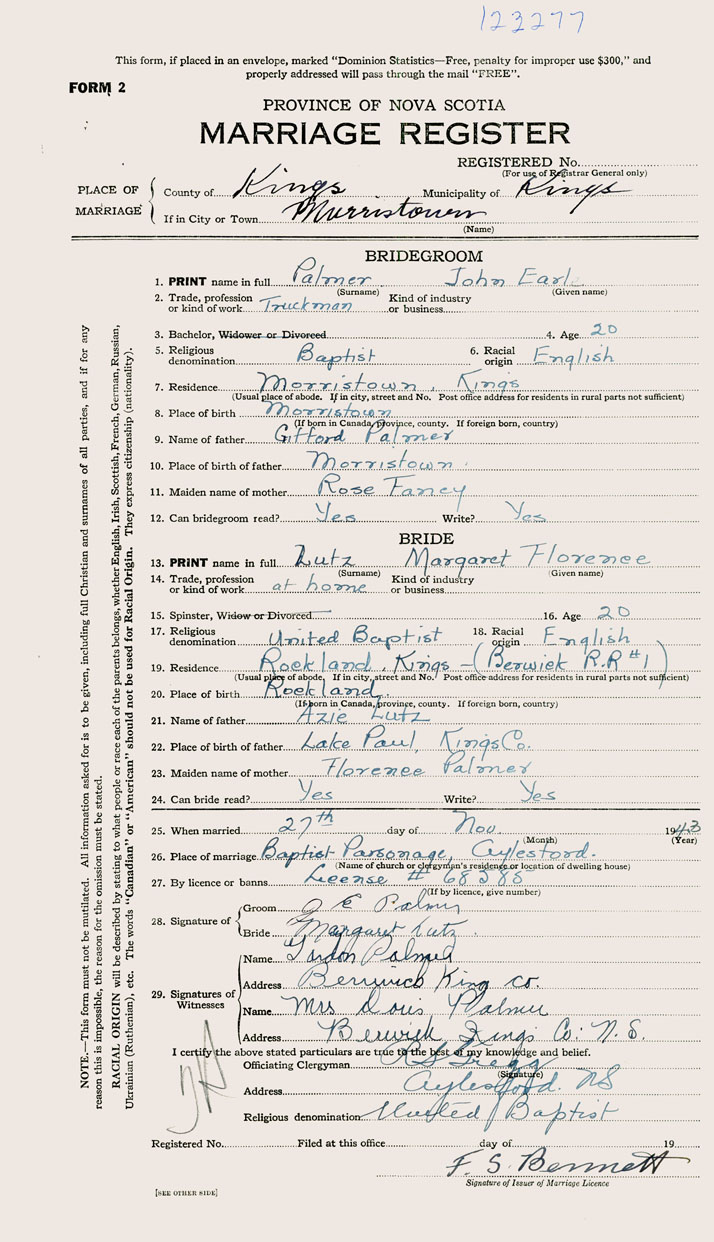 123277
This form, if placed in an envelope, marked "Dominion Statistics—Free, penalty for improper use $300," and
properly addressed will pass through the mail "FREE".
FORM 2
PROVINCE OF NOVA SCOTIA
MARRIAGE REGISTER
REGISTERED No.
(For use of Registrar General only)
PLACE OF MARRIAGE
County of Kings Municipality of Kings
If in City or Town Morristown
(Name)
BRIDEGROOM
1. PRINT name in full Palmer John Earle
(Surname) (Given name)
2. Trade, profession or kind of work Truckman Kind of industry or business
3. Bachelor, Widower or Divorced 4. Age 20
5. Religious denomination Baptist 6. Racial origin English
7. Residence Morristown, Kings
(Usual place of abode. If in city, street and No. Post office address for residents in rural parts not sufficient)
8. Place of birth Morristown
(If born in Canada, province, county. If foreign born, country)
9. Name of father Gifford Palmer
10. Place of birth of father Morristown.
11. Maiden name of mother Rose Fancy
12. Can bridegroom read? Yes Write? Yes
BRIDE
13. PRINT name in full Lutz Margaret Florence
(Surname) (Given name)
14. Trade, profession or kind of work at home Kind of industry or business
15. Spinster, Widow or Divorced 16. Age 20
17. Religious denomination United Baptist 18. Racial origin English
19. Residence Rockland, Kings - (Berwick R.R #1)
(Usual place of abode. If in city, street and No. Post office address for residents in rural parts not sufficient)
20. Place of birth Rockland.
(If born in Canada, province, county. If foreign born, country)
21. Name of father Azie Lutz
22. Place of birth of father Lake Paul, Kings Co.
23. Maiden name of mother Florence Palmer
24. Can bride read? Yes Write? Yes
25. When married 27th day of Nov. 1943
(Month) (Year)
26. Place of marriage Baptist Parsonage, Aylesford.
(Name of church or clergyman's residence or location of dwelling house)
27. By licence or banns License # 68388
(If by licence, give number)
28. Signature of
Groom J E Palmer
Bride Margaret Lutz.
29. Signatures of Witnesses
Name Gordon Palmer
Address Berwick King co.
Name Mrs Doris Palmer
Address Berwick Kings Co. N.S.
I certify the above stated particulars are true to the best of my knowledge and belief.
Officiating Clergyman
(Signature)
Address Aylesford. NS
Religious denomination United Baptist
Registered No. Filed at this office day of 19
F. S. Bennett
Signature of Issuer of Marriage Licence
[SEE OTHER SIDE]
NOTE.—This form must not be mutilated. All information asked for is to be given, including full Christian and surnames of all parties, and if for any
reason this is impossible, the reason for the omission must be stated.
RACIAL ORIGIN will be described by stating to what people or race each of the parents belongs, whether English, Irish, Scottish, French, German, Russian,
Ukrainian (Ruthenian), etc. The words "Canadian" or "American" should not be used for Racial Origin. They express citizenship (nationality).